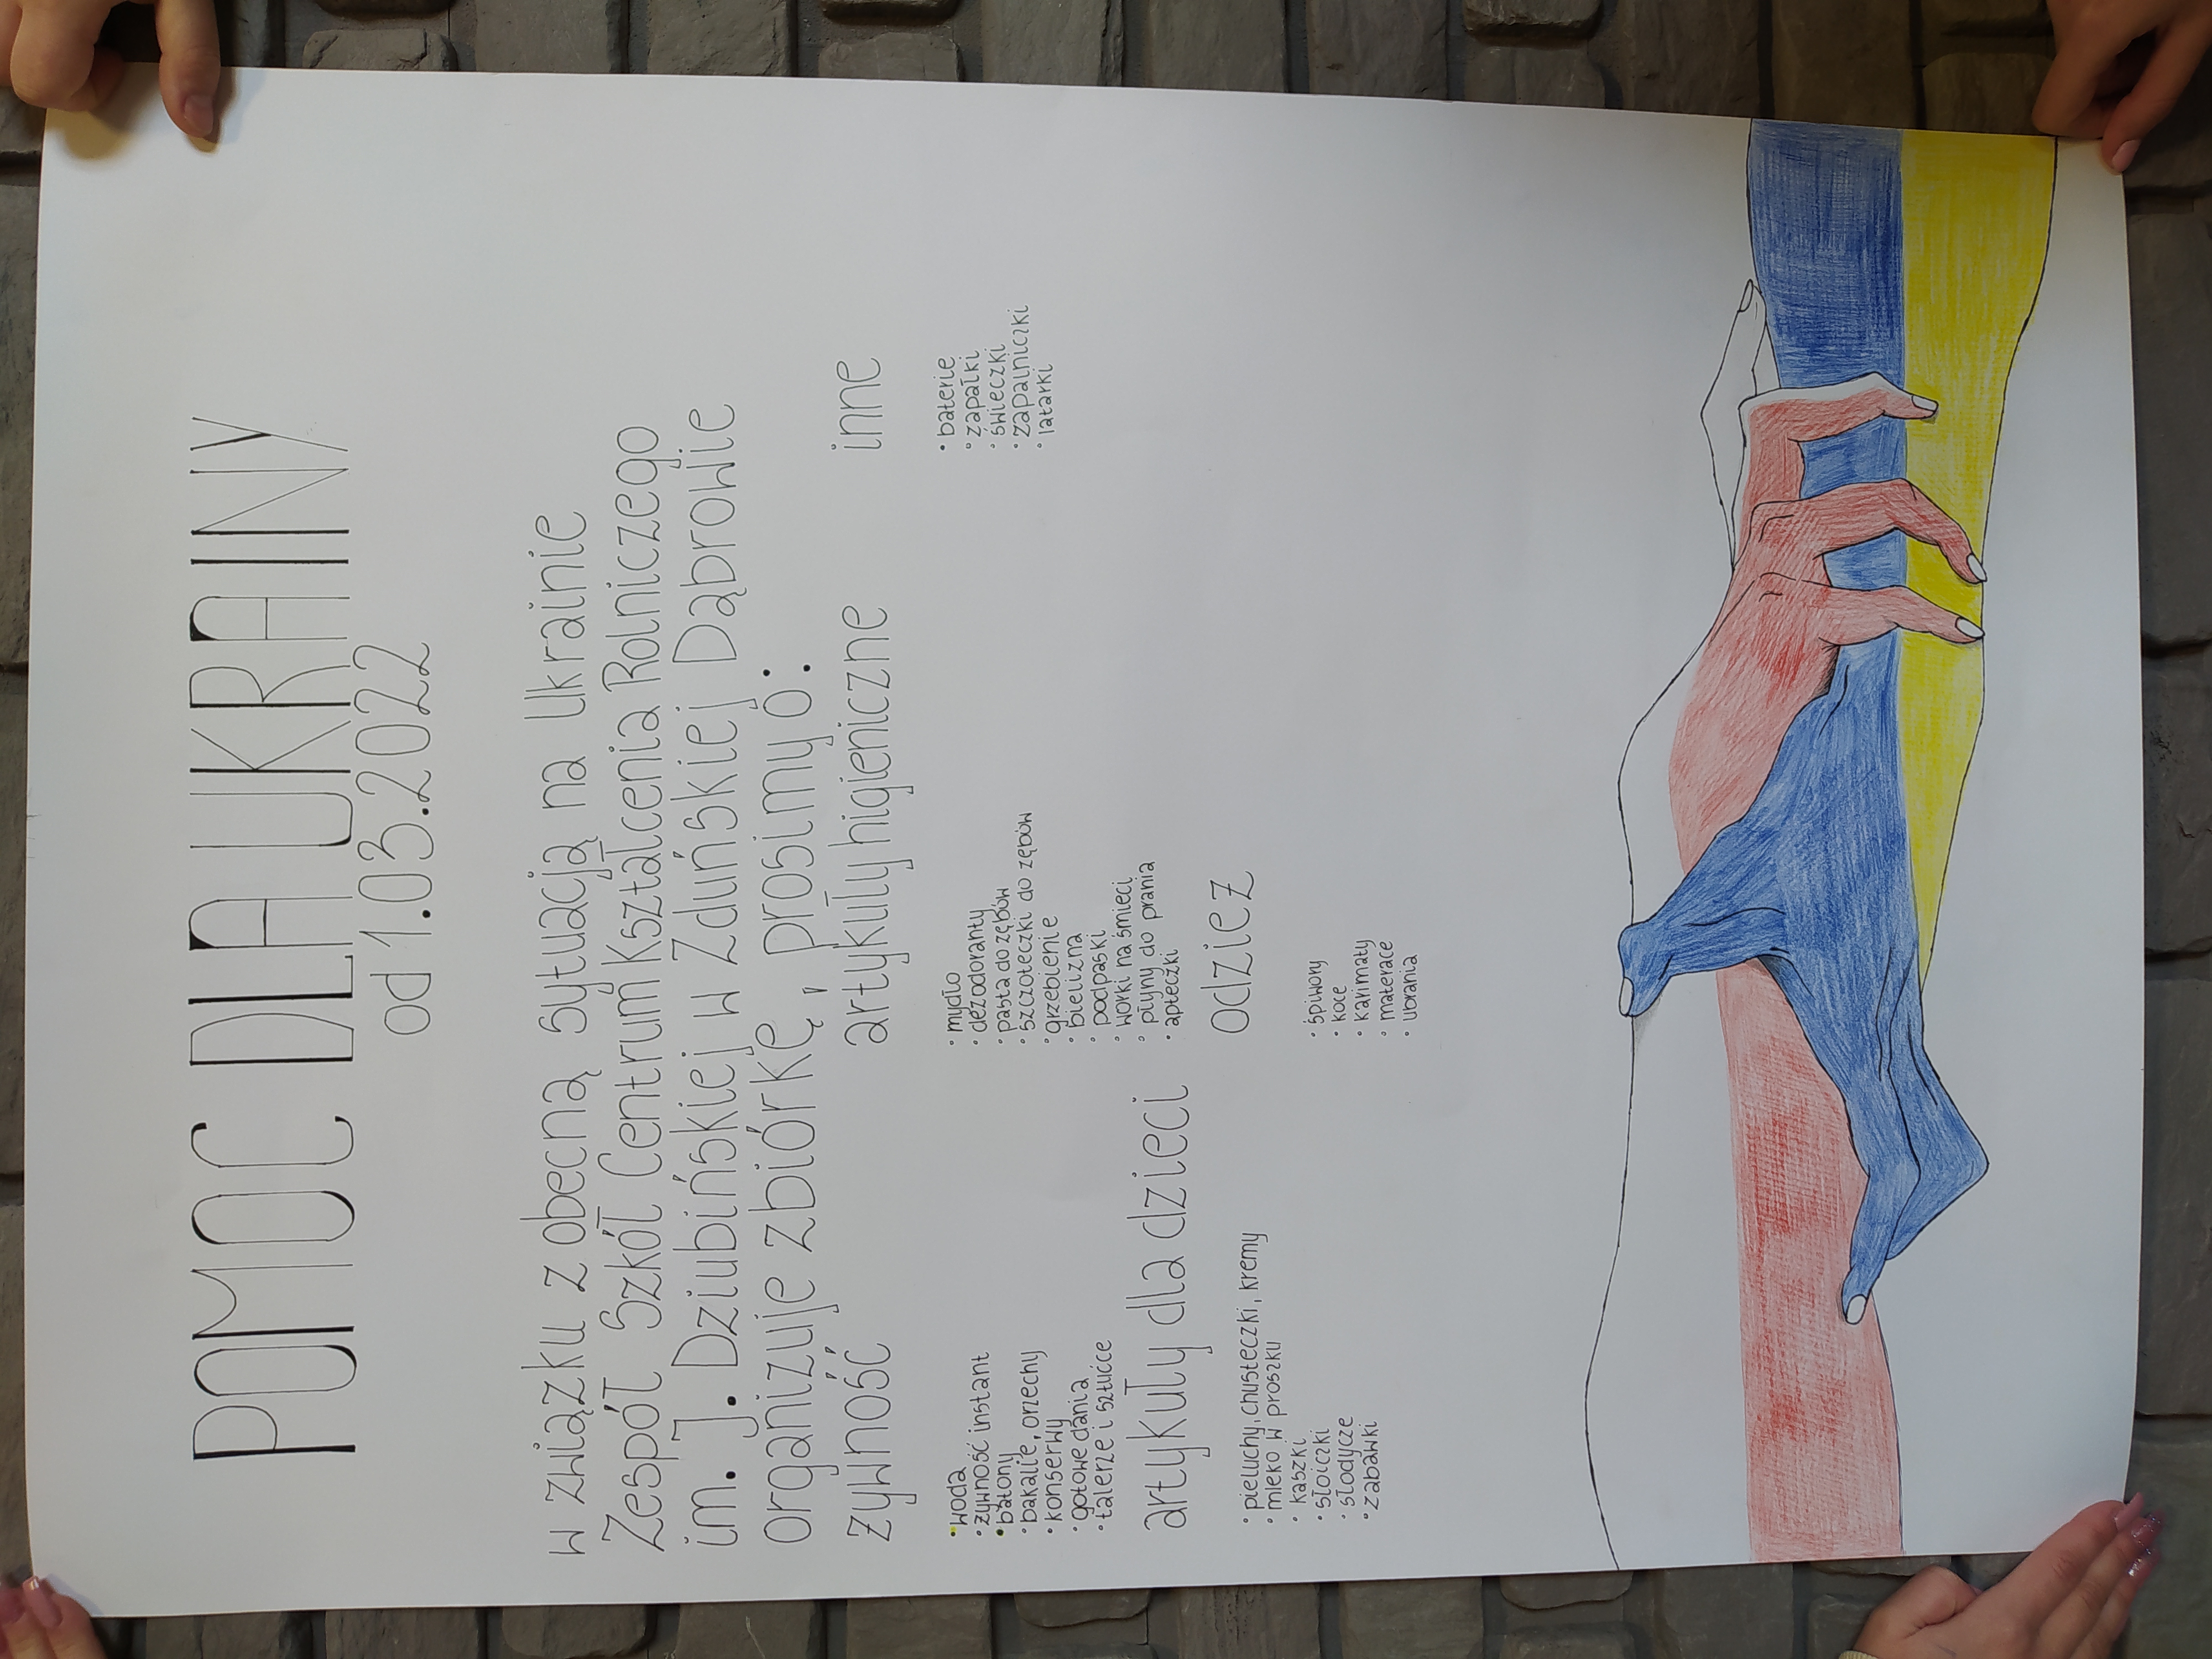 POMOC DLA UKRAINY
od 1.03.2022
w związku z obecną sytuacją na Ukrainie
Zespół Szkół Centrum Kształcenia Rolniczego
im. J. Dziubińskiej w Zduńskiej Dąbrowie
organizuje zbiórkę, prosimy o:
żywność
• woda
• żywność instant
• batony
• bakalie, orzechy
• konserwy
• gotowe dania
• talerze i sztućce
artykuły higieniczne
• mydło
• dezodoranty
• pasta do zębów
• szczoteczki do zębów
• grzebienie
• bielizna
• podpaski
• worki na śmieci
• płyny do prania
• apteczki
inne
• baterie
• zapałki
• świeczki
• zapalniczki
• latarki
artykuły dla dzieci
• pieluchy, chusteczki, kremy
• mleko w proszku
• kaszki
• słoiczki
• słodycze
• zabawki
odzież
• śpiwory
• koce
• karimaty
• materace
• ubrania